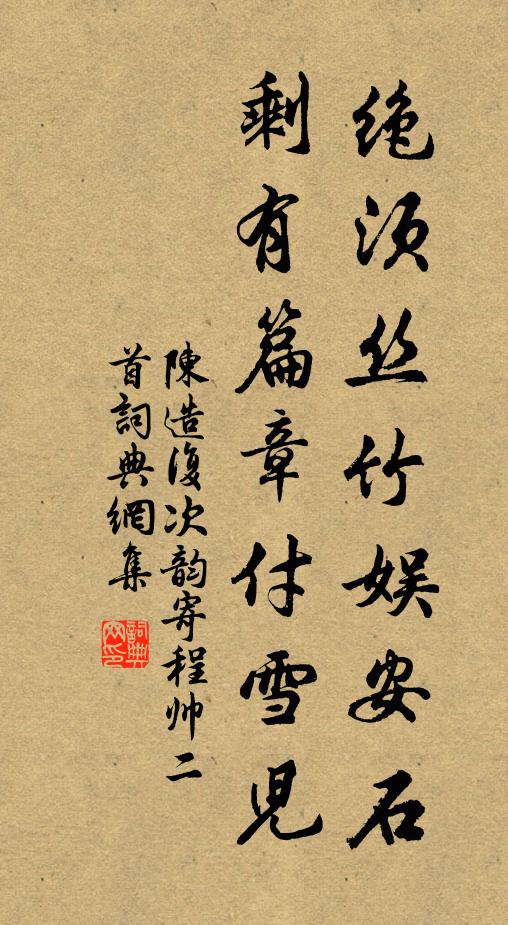 绝须丝竹娱安石
剩有篇章付雪児
陳造復次韵寄程帅二
首詞典網集
詞典網印